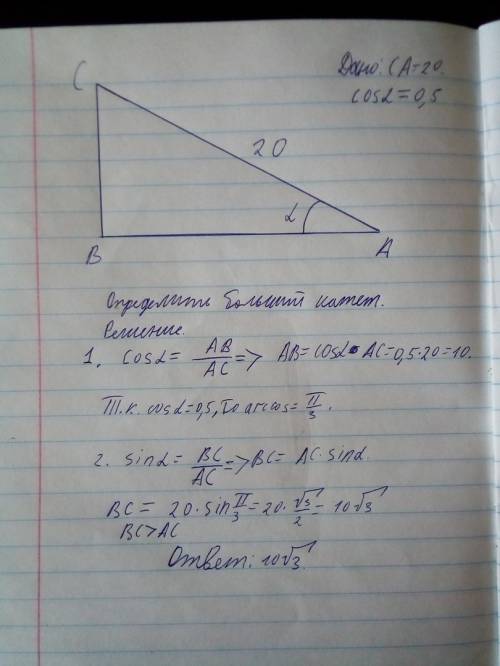 Дано: CA=20.
cosα=0,5
C
20
α
B
A
Определите больший катет.
Решение.
1. cosα= AB/AC => AB=cosα•AC=0,5·20=10.
Т.к. cosα=0,5, то arccos= π/3.
2. sinα= BC/AC => BC= AC·sinα.
BC= 20·sin π/3=20·√3/2= 10√3
BC>AC
Ответ: 10√3.